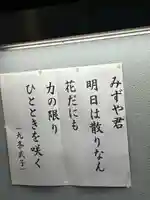 みずや君
明日は散りなん
花だにも
力の限り
ひとときを咲く
(九条武子)